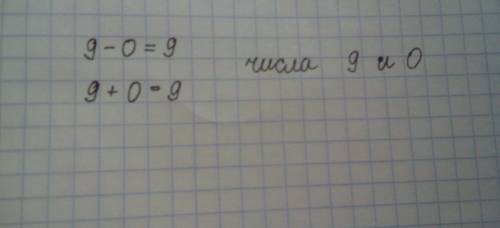 9 - 0 = 9
9 + 0 = 9
числа 9 и 0